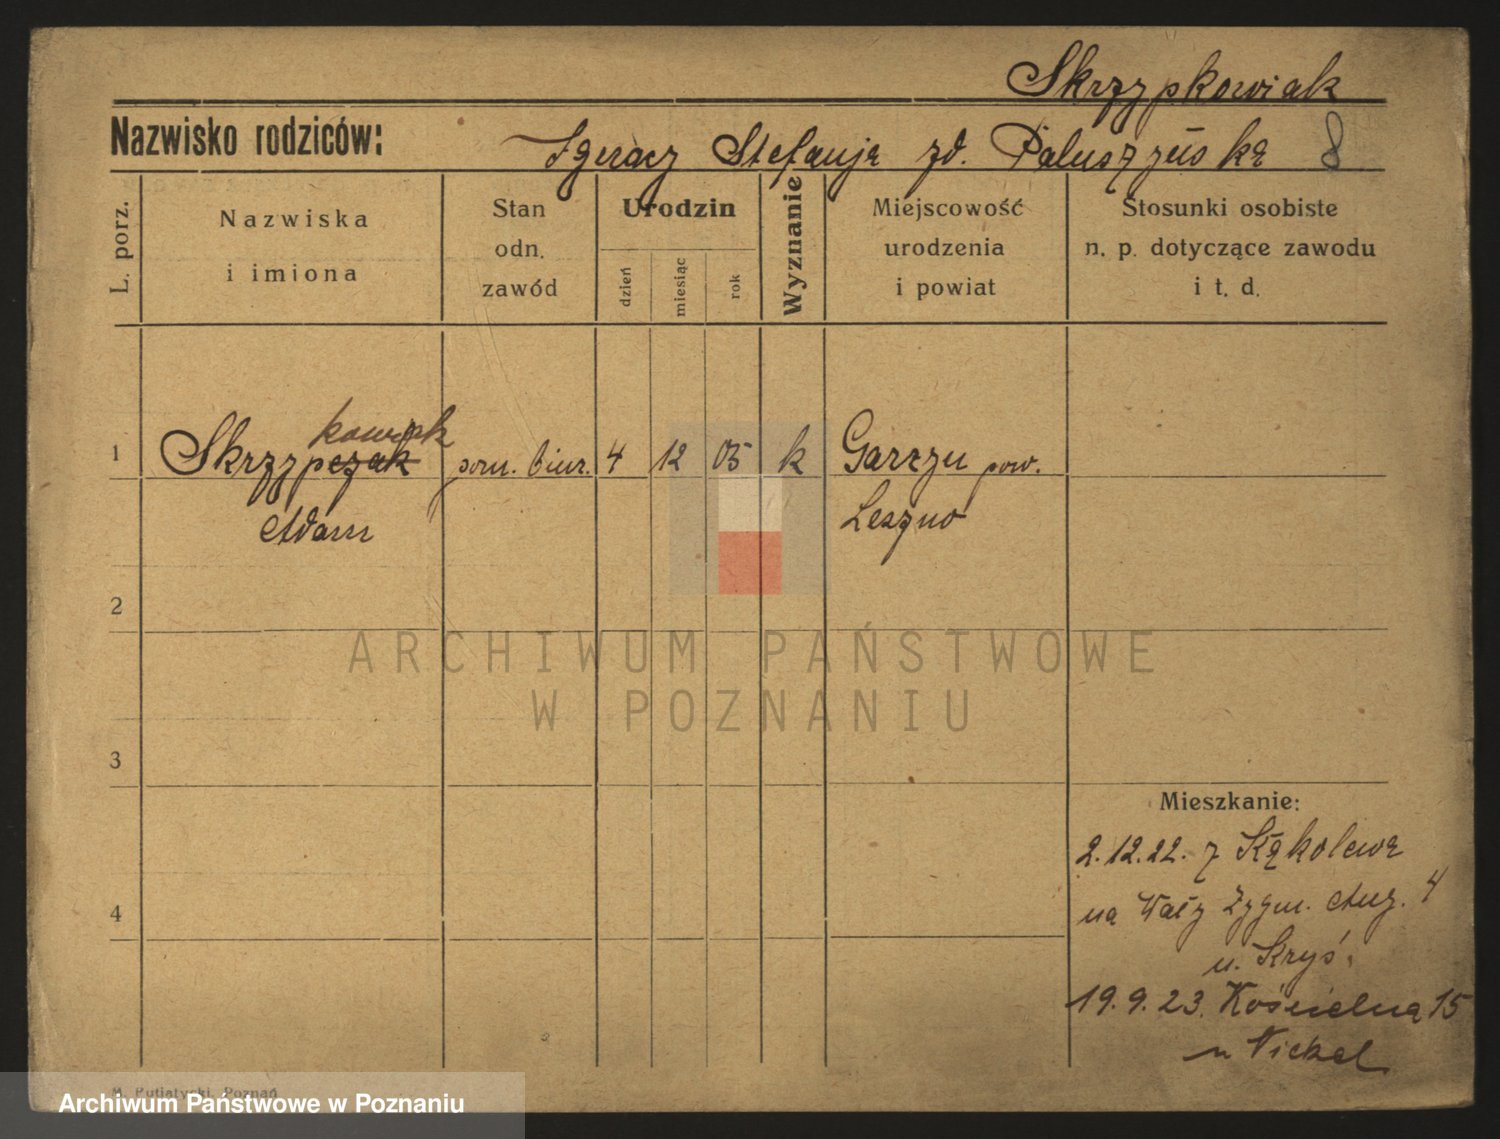 Skrzypkowiak
Nazwisko rodziców: Ignacz Stefanja zd. Paluszzuska 8
L. porz.
Nazwiska
i imiona
Stan
odn.
zawód
Urodzin
dzień
miesiąc
rok
Wyznanie
Miejscowość
urodzenia
i powiat
Stosunki osobiste
n. p. dotyczące zawodu
i t. d.
kowiak
1 Skrzypczak pom. biur. 4 12 05 k Garzyn pow.
Adam Leszno
2
3
4
Mieszkanie:
2.12.22. z Kąkolewa
na Wały Zygm. Aug. 4
u. Kryś.
19.9.23. Kościelna 15
u Nickel
M. Putiatycki, Poznań
ARCHIWUM PAŃSTWOWE
W POZNANIU
Archiwum Państwowe w Poznaniu